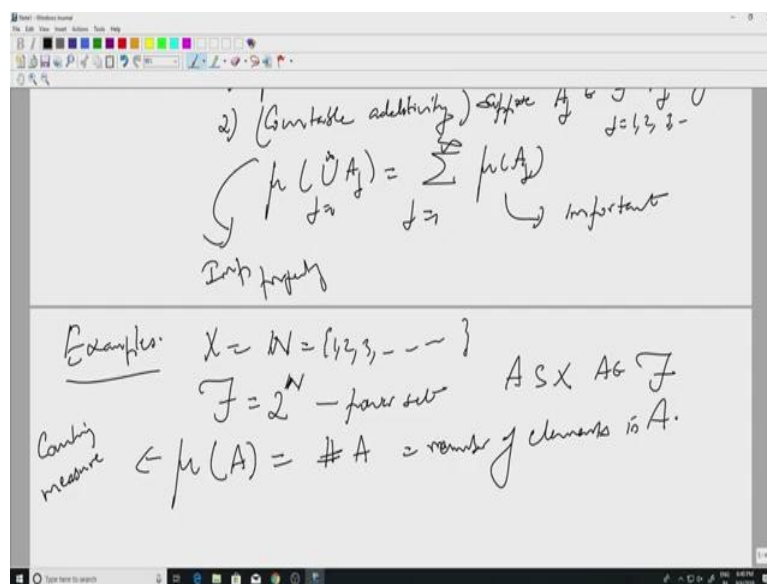 Note1 - Windows Journal
File Edit View Insert Actions Tools Help
2) (Countable additivity) Suppose A_j ∈ F
j=1,2,3-
μ(∪A_j) = Σ μ(A_j)
j=1 j=1 ∞
↳ important
Imp property
Examples. X = ℕ = {1,2,3,----}
F = 2^ℕ - power set A ⊆ X A ∈ F
Counting measure ← μ(A) = # A = number of elements in A.
Type here to search